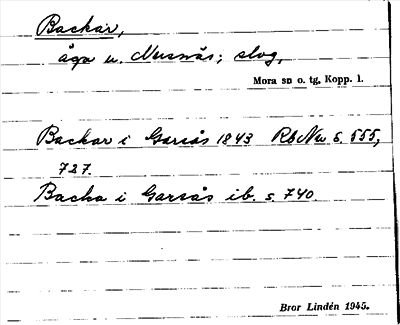 Backar,
äga u. Nusnäs; skog,
Mora sn o. tg, Kopp. l.
Backar i Garsås 1843 RbNu s. 555,
727.
Backa i Garsås ib. s. 740.
Bror Lindén 1945.